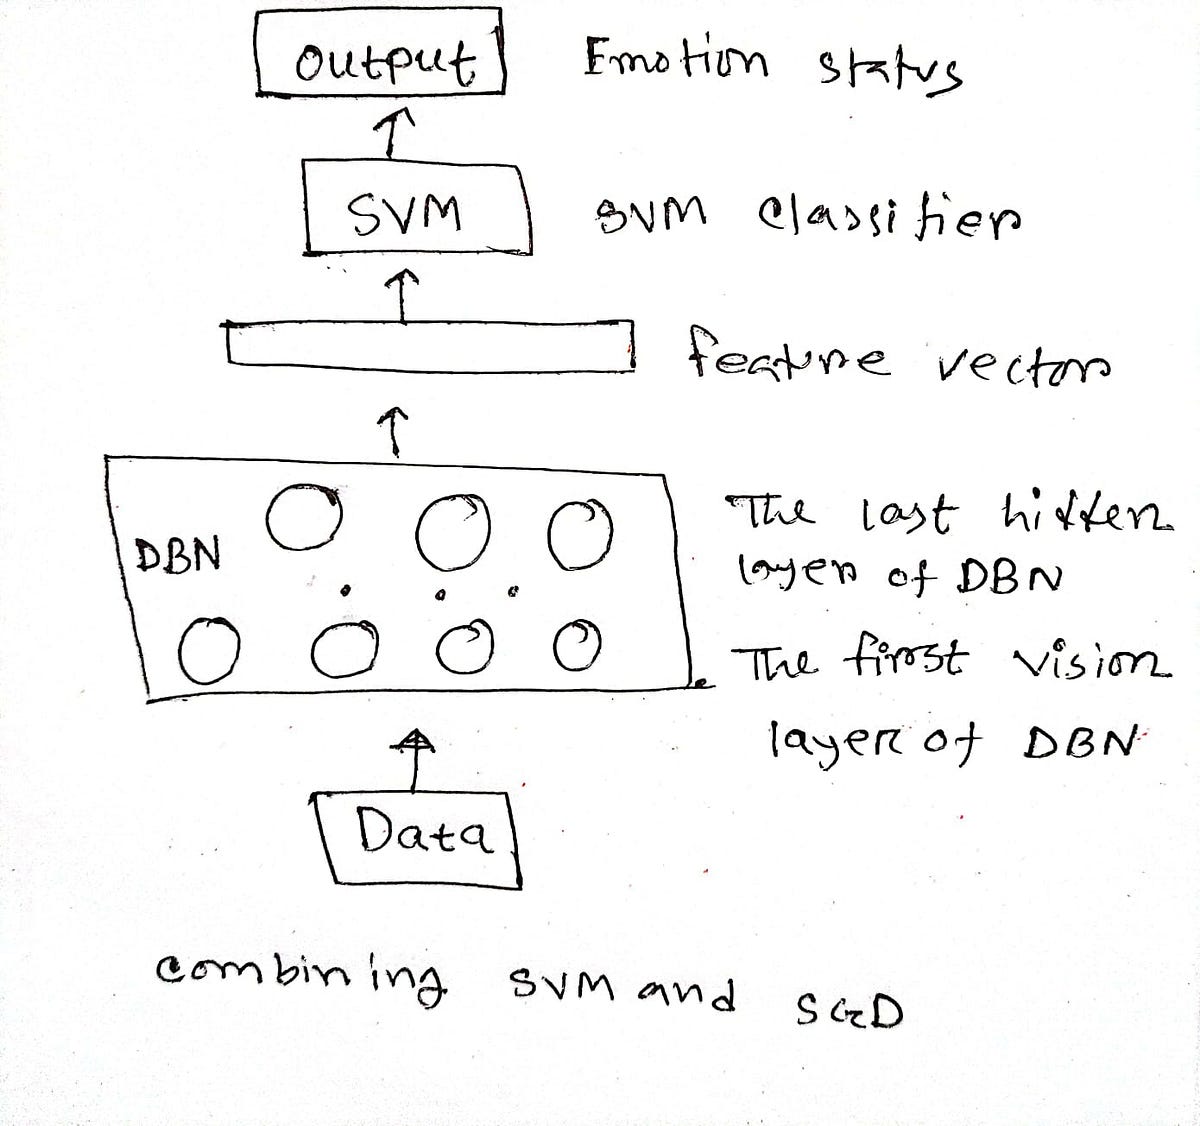 Output Emotion status
SVM SVM classifier
feature vector
The last hidden
DBN
layer of DBN
The first vision
layer of DBN
Data
combining SVM and SGD